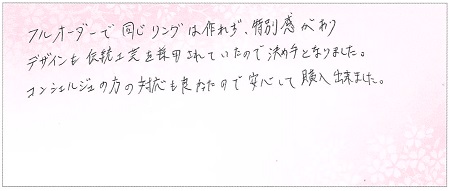 フルオーダーで同じリングは作れず、特別感があり
デザインも伝統工芸を採用されていたので決め手となりました。
コンシェルジュの方の対応も良かったので安心して購入出来ました。